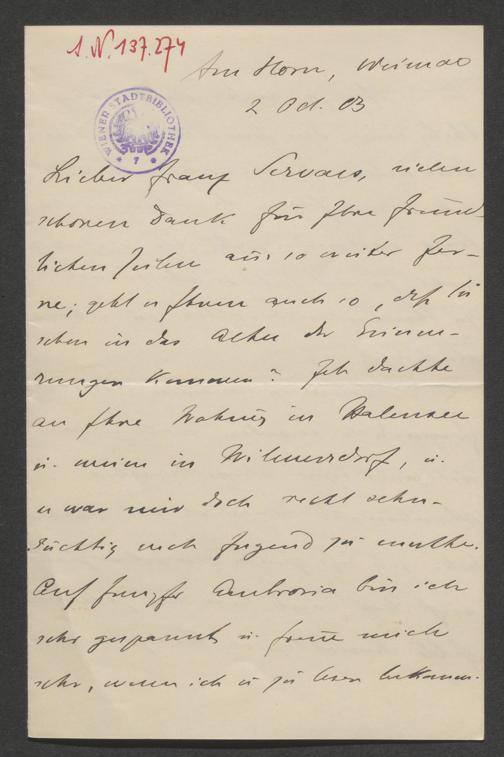 I. N. 137.274
Am Horn, Weimar
2 Oct. 03
WIENER STADTBIBLIOTHEK
Lieber Franz Servaes, vielen
schönen Dank für Ihre freund-
lichen Zeilen aus so weiter Fer-
ne; geht es Ihnen auch so, daß Sie
schon in das Alter der Erinne-
rungen kommen? Ich dachte
an Ihre Wohnung in Halensee
u. meine in Wilmersdorf, u.
es war mir doch recht sehn-
süchtig nach Jugend zu muthe.
Auf Jungfer Ambrosia bin ich
sehr gespannt u. freue mich
sehr, wenn ich es zu lesen bekomm.